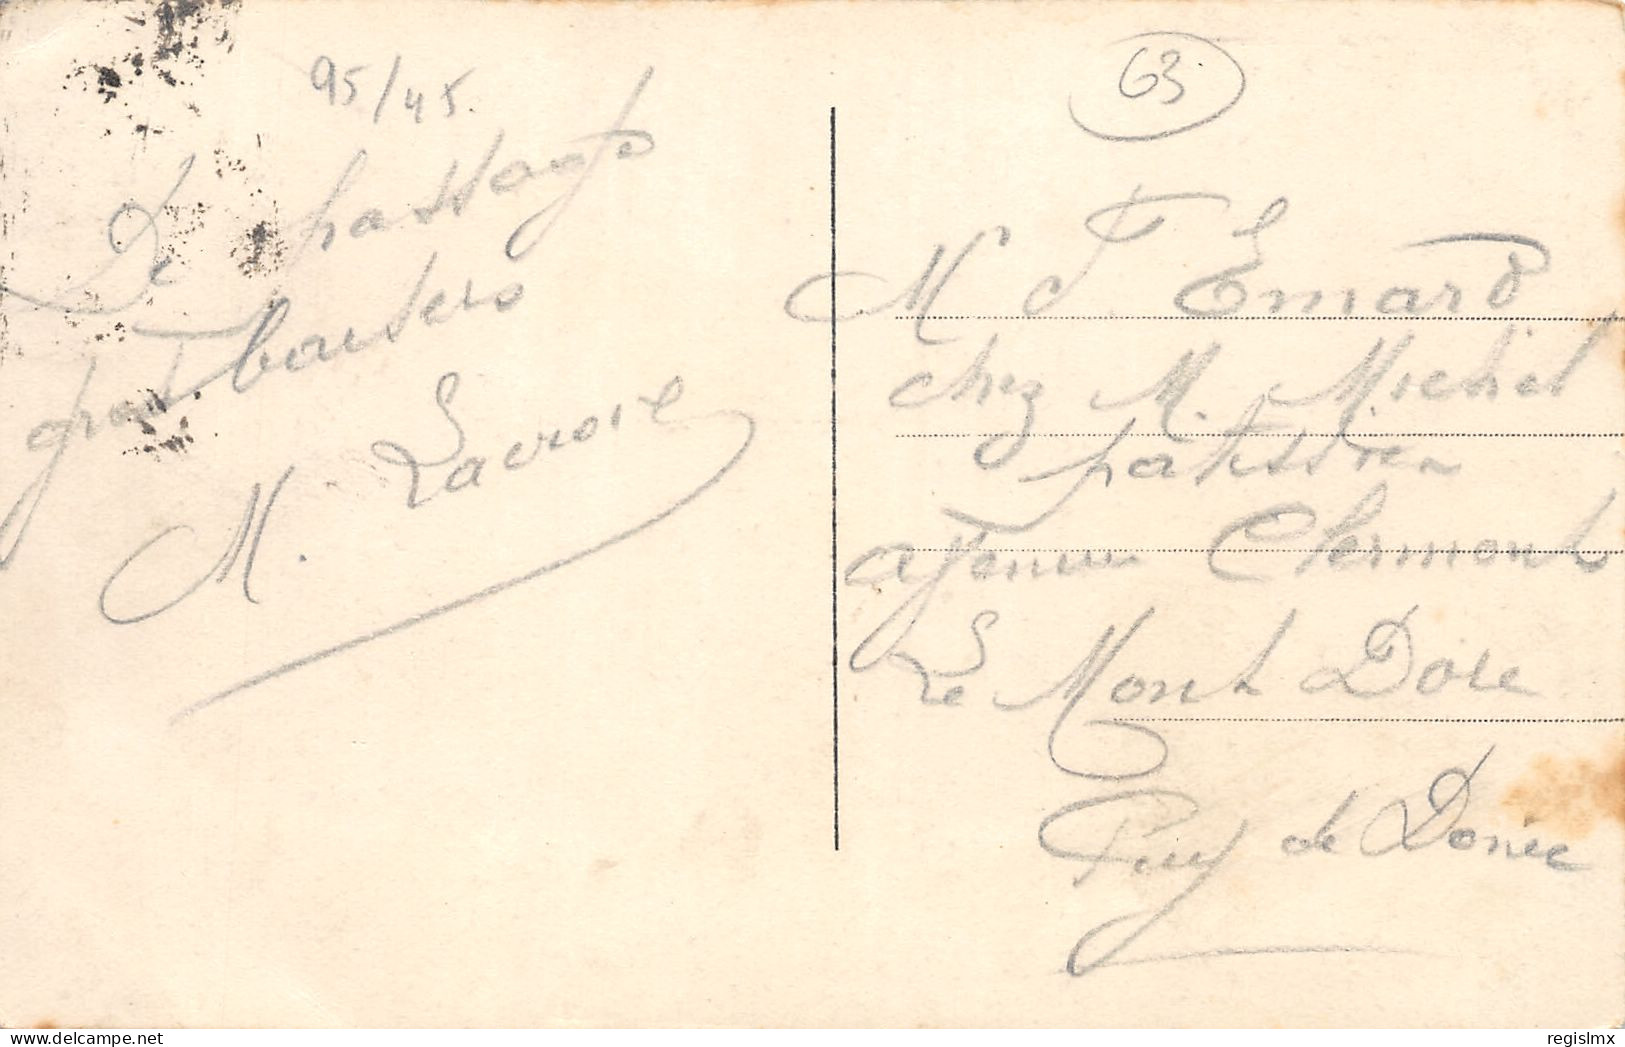 95/45.
63
De passage
gros baisers
M. Lacroix
M F Emard
chez M. Michel
patissier
avenue Clermont
Le Mont Dore
Puy de Dome
regislmx